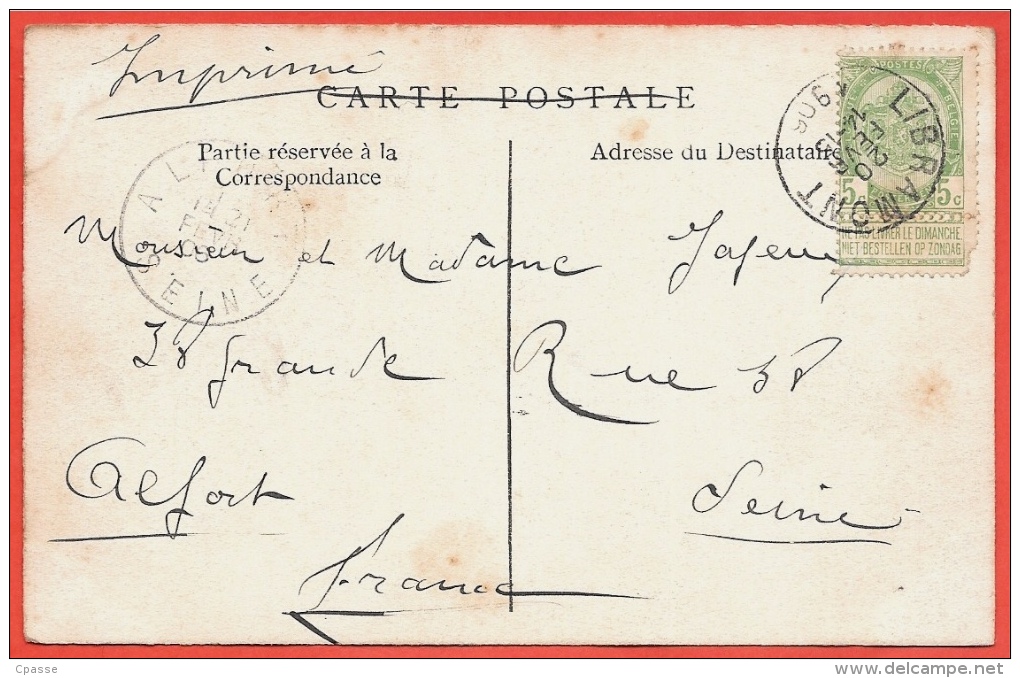 Imprimé
CARTE POSTALE
Partie réservée à la
Correspondance
Adresse du Destinataire
POSTES
LIBRAMONT
20
FEVR
1906
5 c
NE PAS LIVRER LE DIMANCHE
NIET BESTELLEN OP ZONDAG
21
SEINE
Monsieur et Madame
38 Grande Rue 38
Alfort Seine
France
Cpasse
www.delcampe.net